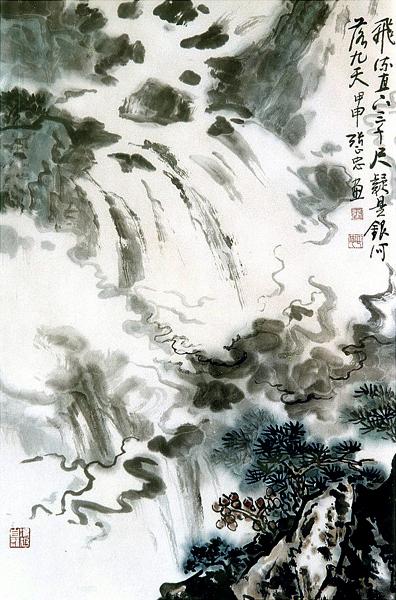 飛流直下三千尺疑是銀河
落九天甲申張忠画